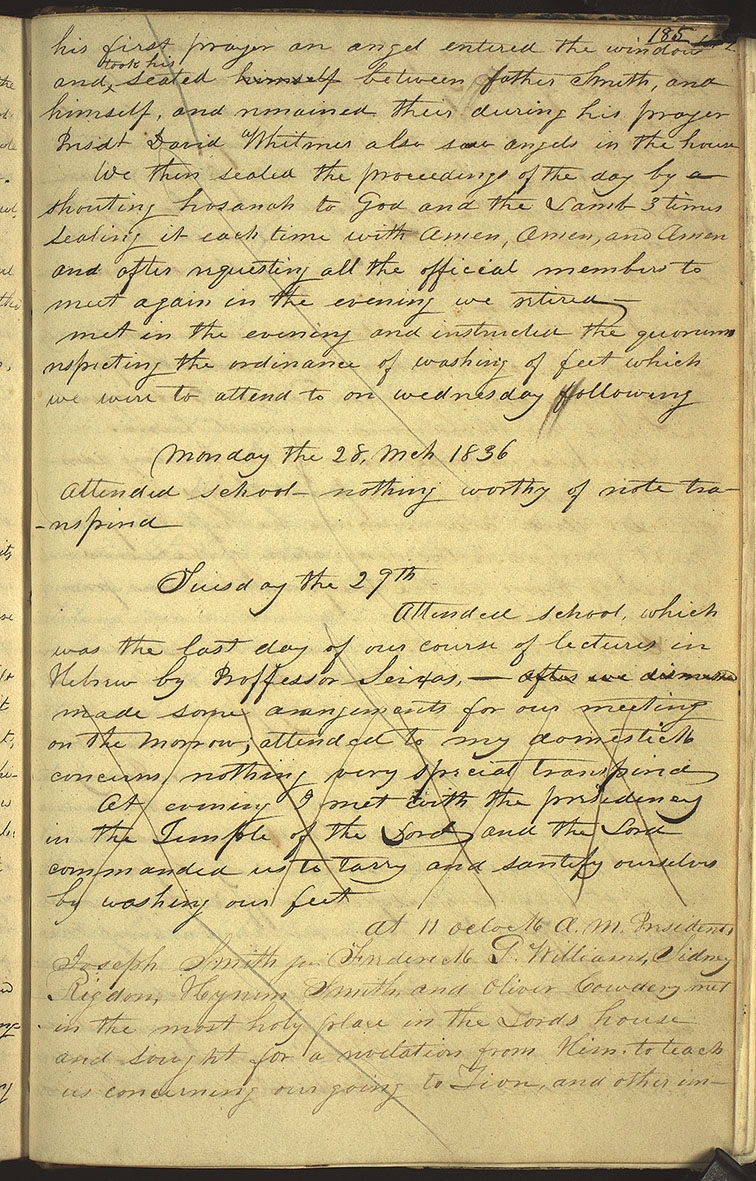 185
his first prayer an angel entered the window
took his
and, seated himself between father Smith, and
himself, and remained their during his prayer
Presdt David Whitmer also saw angels in the house
We then sealed the proceedings of the day by a
shouting hosanah to God and the Lamb 3 times
sealing it each time with Amen, Amen, and Amen
and after requesting all the official members to
meet again in the evening we retired—
met in the evening and instructed the quorums
respecting the ordinance of washing of feet which
we were to attend to on wednesday following
Monday the 28, Mch 1836
Attended school— nothing worthy of note tra-
-nspired
Tuesday the 29th
Attended school, which
was the last day of our course of lectures in
Hebrew by Proffessor Seixas,— after we dismissed
made some arangements for our meeting
on the morrow, attended to my domestick
concerns, nothing very special transpired
At evening I met with the presidency
in the Temple of the Lord and the Lord
commanded us to tarry and santify ourselves
by washing our feet
at 11 oclock A. M. Presidents
Joseph Smith jun Frederick G. Williams, Sidney
Rigdon, Hyrum Smith, and Oliver Cowdery met
in the most holy place in the Lords house
and sought for a revelation from Him. to teach
us concerning our going to Zion, and other im-